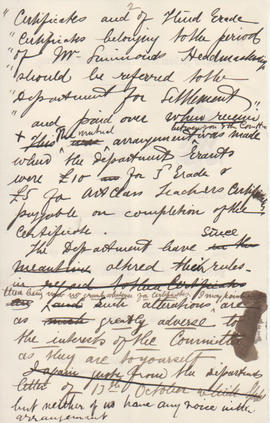 2
"Certificates and of Third Grade
"Certificates belonging to the period
"of Mr Simmonds Headmastership
"should be referred to the
"Department for Settlement"
"and paid over when receive
between you & the Committee
+ This The mutual arrangement was made
when the Department Grants
were £10 for 3rd Grade &
£5 for Art Class Teachers Certificate
payable on completion of the
Certificate.
The Department have Since
altered their rules
in regard to these Certificates
there being now no grant for Certificates
and such alterations are
as greatly adverse to
the interests of the Committee
as they are to yourself
I again quote from the departments
letter of 13th October which
but neither of us have any voice in their
arrangement